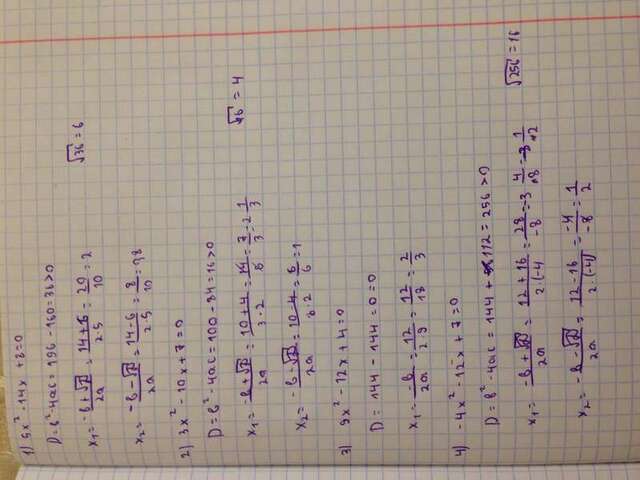 1) 5x² - 14x + 8 = 0
D = b² - 4ac = 196 - 160 = 36 > 0
x₁ = (-b + √D)/2a = (14 + 6)/(2·5) = 20/10 = 2 √36 = 6
x₂ = (-b - √D)/2a = (14 - 6)/(2·5) = 8/10 =
2) 3x² - 10x + 7 = 0
D = b² - 4ac = 100 - 84 = 16 > 0
x₁ = (-b + √D)/2a = (10 + 4)/(3·2) = 14/6 = 7/3 = 2 1/3 √16 = 4
x₂ = (-b - √D)/2a = (10 - 4)/(3·2) = 6/6 = 1
3) 9x² - 12x + 4 = 0
D = 144 - 144 = 0 = 0
x₁ = -b/2a = 12/(2·9) = 12/18 = 2/3
4) -4x² - 12x + 7 = 0
D = b² - 4ac = 144 + 112 = 256 > 0
x₁ = (-b + √D)/2a = (12 + 16)/(2·(-4) = 28/-8 = -3 4/8 = -3 1/2 √256 = 16
x₂ = (-b - √D)/2a = (12 - 16)/(2·(-4)) = -4/-8 = 1/2